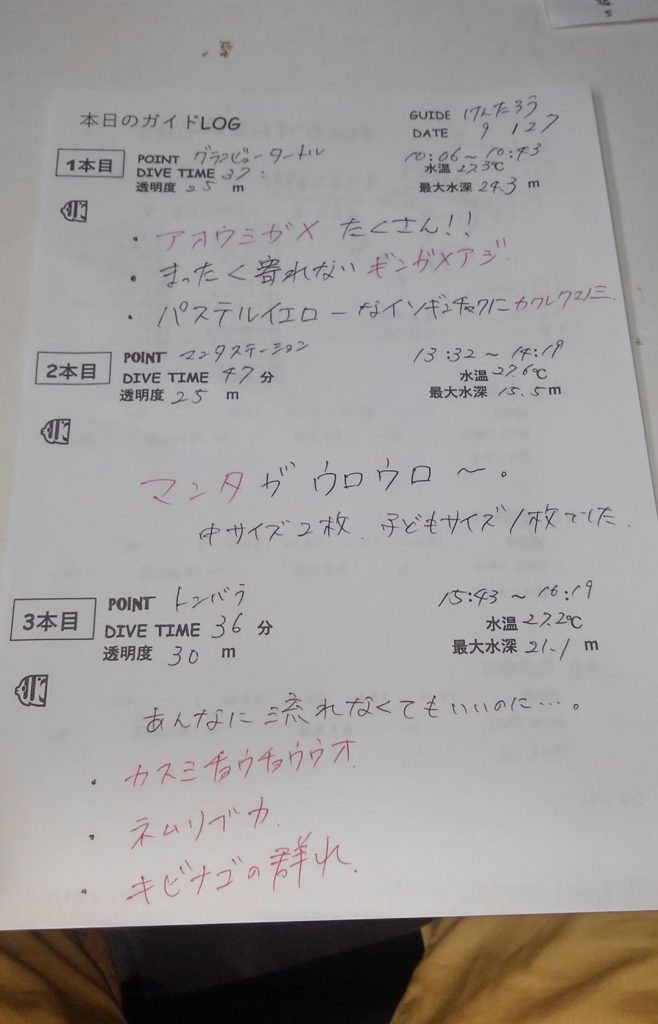 本日のガイドLOG
GUIDE けんたろう
DATE 9 / 27
1本目
POINT グランビュータートル
10:06～10:43
DIVE TIME 37
水温 27.3℃
透明度 25 m
最大水深 24.3 m
・アオウミガメ たくさん!!
・まったく寄れない ギンガメアジ.
・パステルイエローなイソギンチャクにカクレクマノミ.
2本目
POINT マンタステーション
13:32～14:19
DIVE TIME 47分
水温 27.6℃
透明度 25 m
最大水深 15.5m
マンタが ウロウロ～。
中サイズ2枚、子どもサイズ1枚でした.
3本目
POINT トンバラ
15:43～16:19
DIVE TIME 36 分
水温 27.2℃
透明度 30 m
最大水深 21.1 m
あんなに流れなくてもいいのに…。
・カスミチョウチョウウオ
・ネムリブカ.
・キビナゴの群れ.